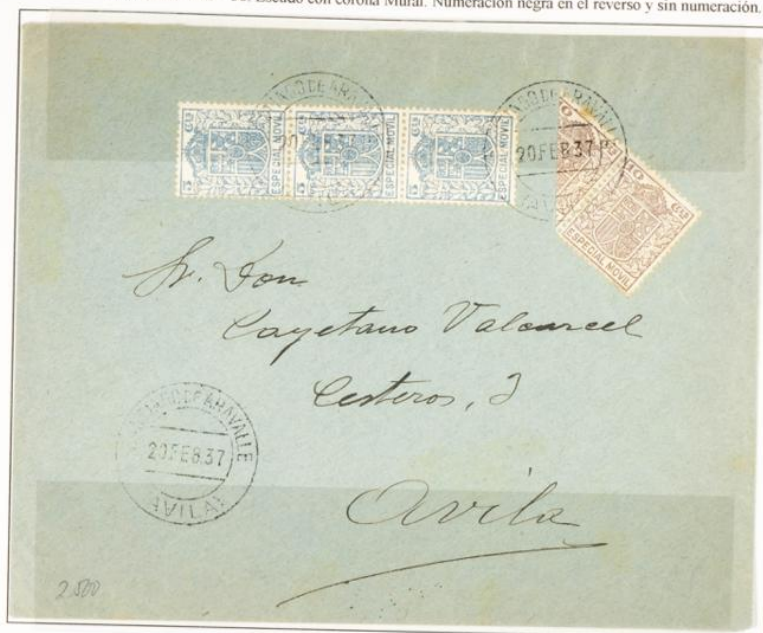 Escudo con corona Mural. Numeración negra en el reverso y sin numeración.
5 5 5
ESPECIAL MOVIL ESPECIAL MOVIL ESPECIAL MOVIL
DE ARAVALLE
20.FEB.37
DE ARAVALLE
20.FEB.37
10
ESPECIAL MOVIL
Sr. Don
Cayetano Valcarcel
Cesteros, 3
Avila
DE ARAVALLE
20.FEB.37
(AVILA)
2.500